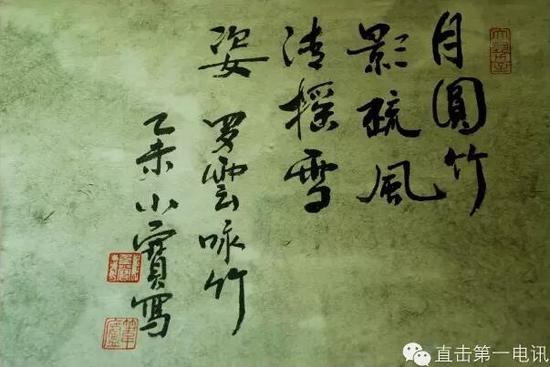 月圓竹
影疏風
清摇雪
姿 罗雲咏竹
乙未小寶寫
直击第一电讯